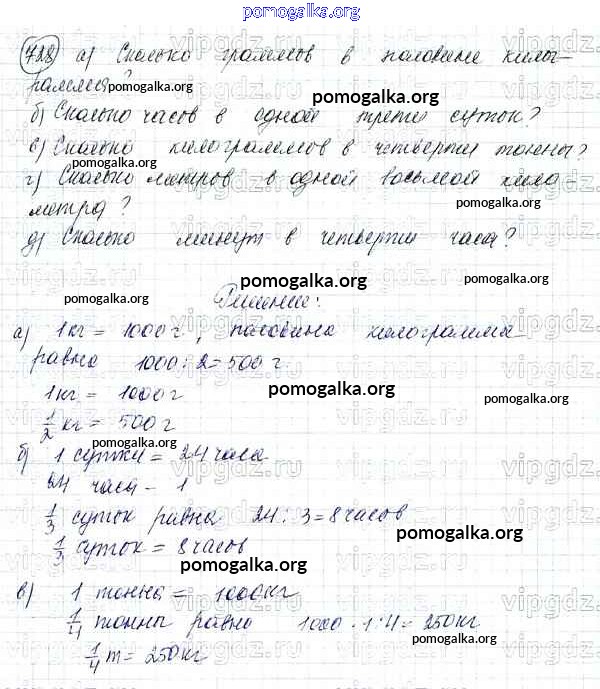 pomogalka.org
728) а) Сколько граммов в половине кило-
грамма?
pomogalka.org
б) Сколько часов в одной трети суток?
в) Сколько килограммов в четверти тонны?
pomogalka.org
г) Сколько метров в одной восьмой кило-
метра?
pomogalka.org
д) Сколько минут в четверти часа?
pomogalka.org
pomogalka.org
Решение:
pomogalka.org
а) 1кг = 1000 г, половина килограмма
равна 1000 : 2 = 500 г.
1кг = 1000 г
pomogalka.org
1/2 кг = 500 г
pomogalka.org
б) 1 сутки = 24 часа
24 часа - 1
1/3 суток равна 24 : 3 = 8 часов
pomogalka.org
1/3 суток = 8 часов
pomogalka.org
в) 1 тонна = 1000 кг
1/4 тонны равно 1000 · 1 : 4 = 250 кг
pomogalka.org
1/4 т = 250 кг